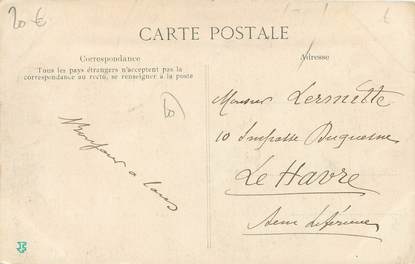 20 €
CARTE POSTALE
Correspondance
Tous les pays étrangers n'acceptent pas la
correspondance au recto, se renseigner à la poste
Adresse
Monsieur Lermitte
10 Impasse Duquesne
Le Havre
Seine Inférieure
Bonjour a tous